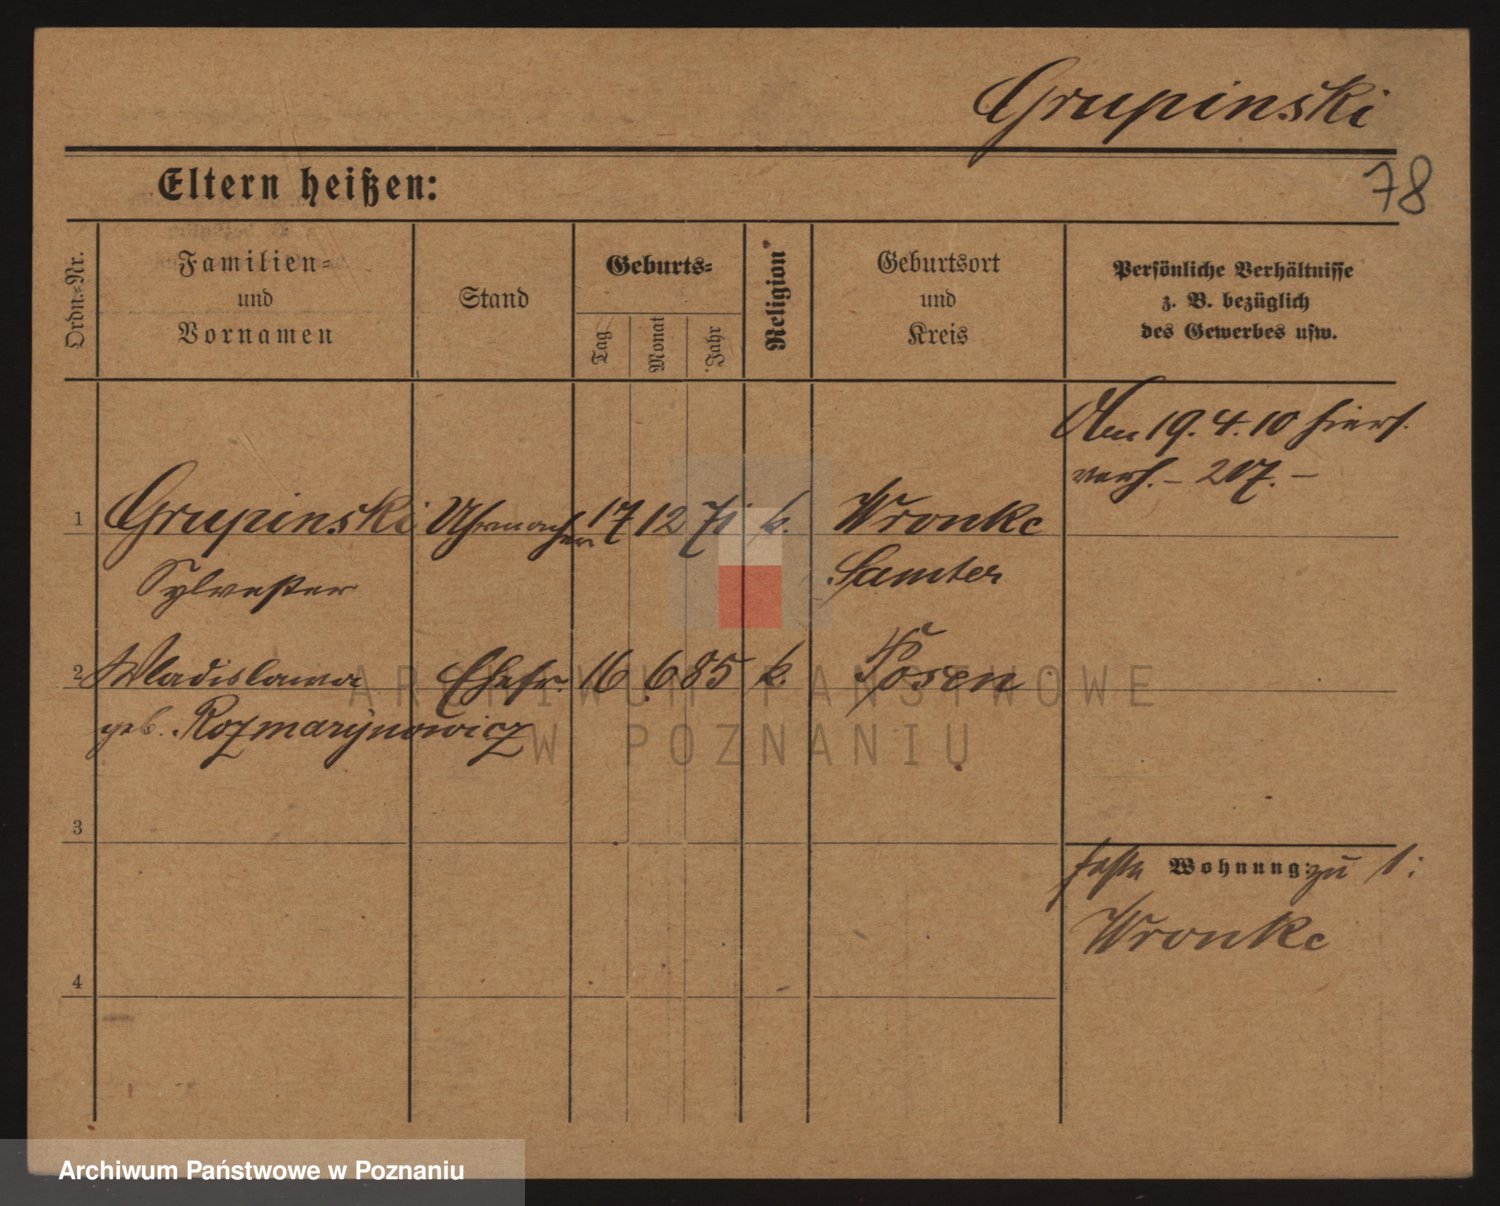 Grupinski
78
Eltern heißen:
Ordn.-Nr.
Familien-
und
Vornamen
Stand
Geburts-
Tag
Monat
Jahr
Religion
Geburtsort
und
Kreis
Persönliche Verhältnisse
z. B. bezüglich
des Gewerbes usw.
Am 19.4.10 hiers.
verh. - 207. -
1 Grupinski Uhrmacher 17 12 71 k. Wronke
Sylvester Samter
2 Wladislawa Ehefr. 16 6 85 k. Posen
geb. Rozmarynowicz
3
feste Wohnung: zu 1:
Wronke
4
ARCHIWUM PAŃSTWOWE
W POZNANIU
Archiwum Państwowe w Poznaniu